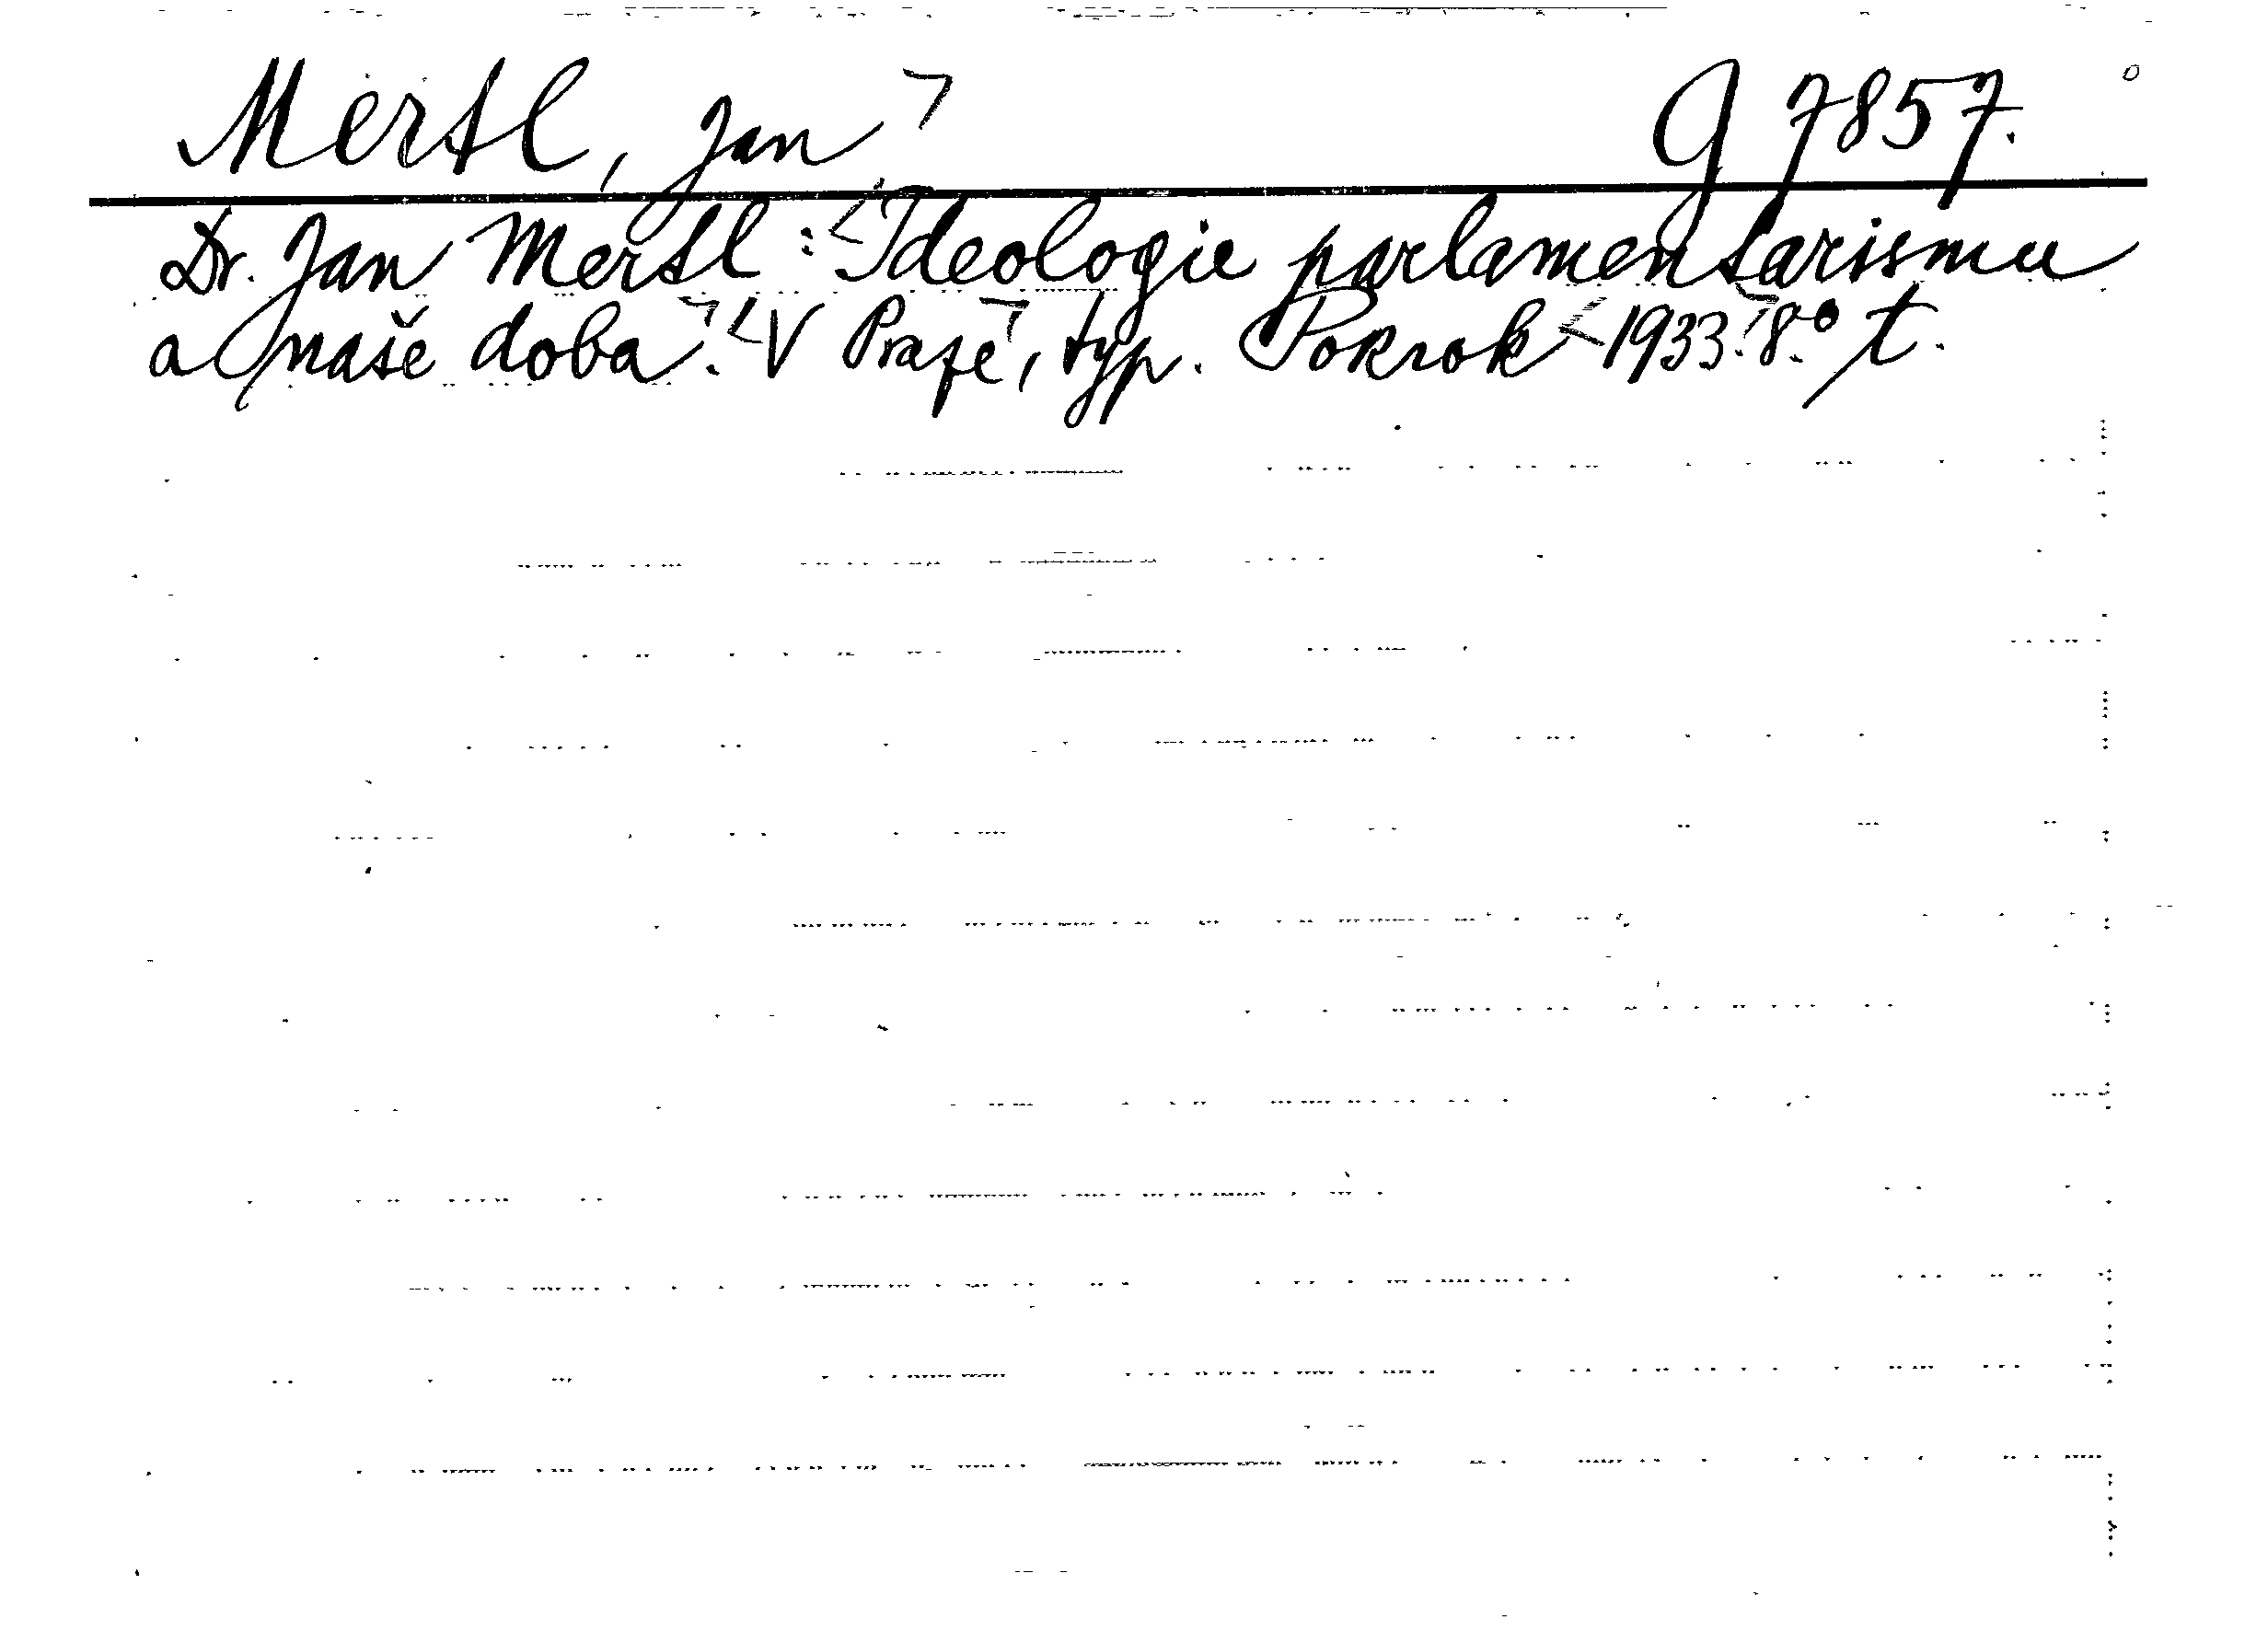 Mertl, Jan g 7857.
Dr. Jan Mertl: Ideologie parlamentarismu
a naše doba. V Praze, typ. Pokrok 1933. 8° t.